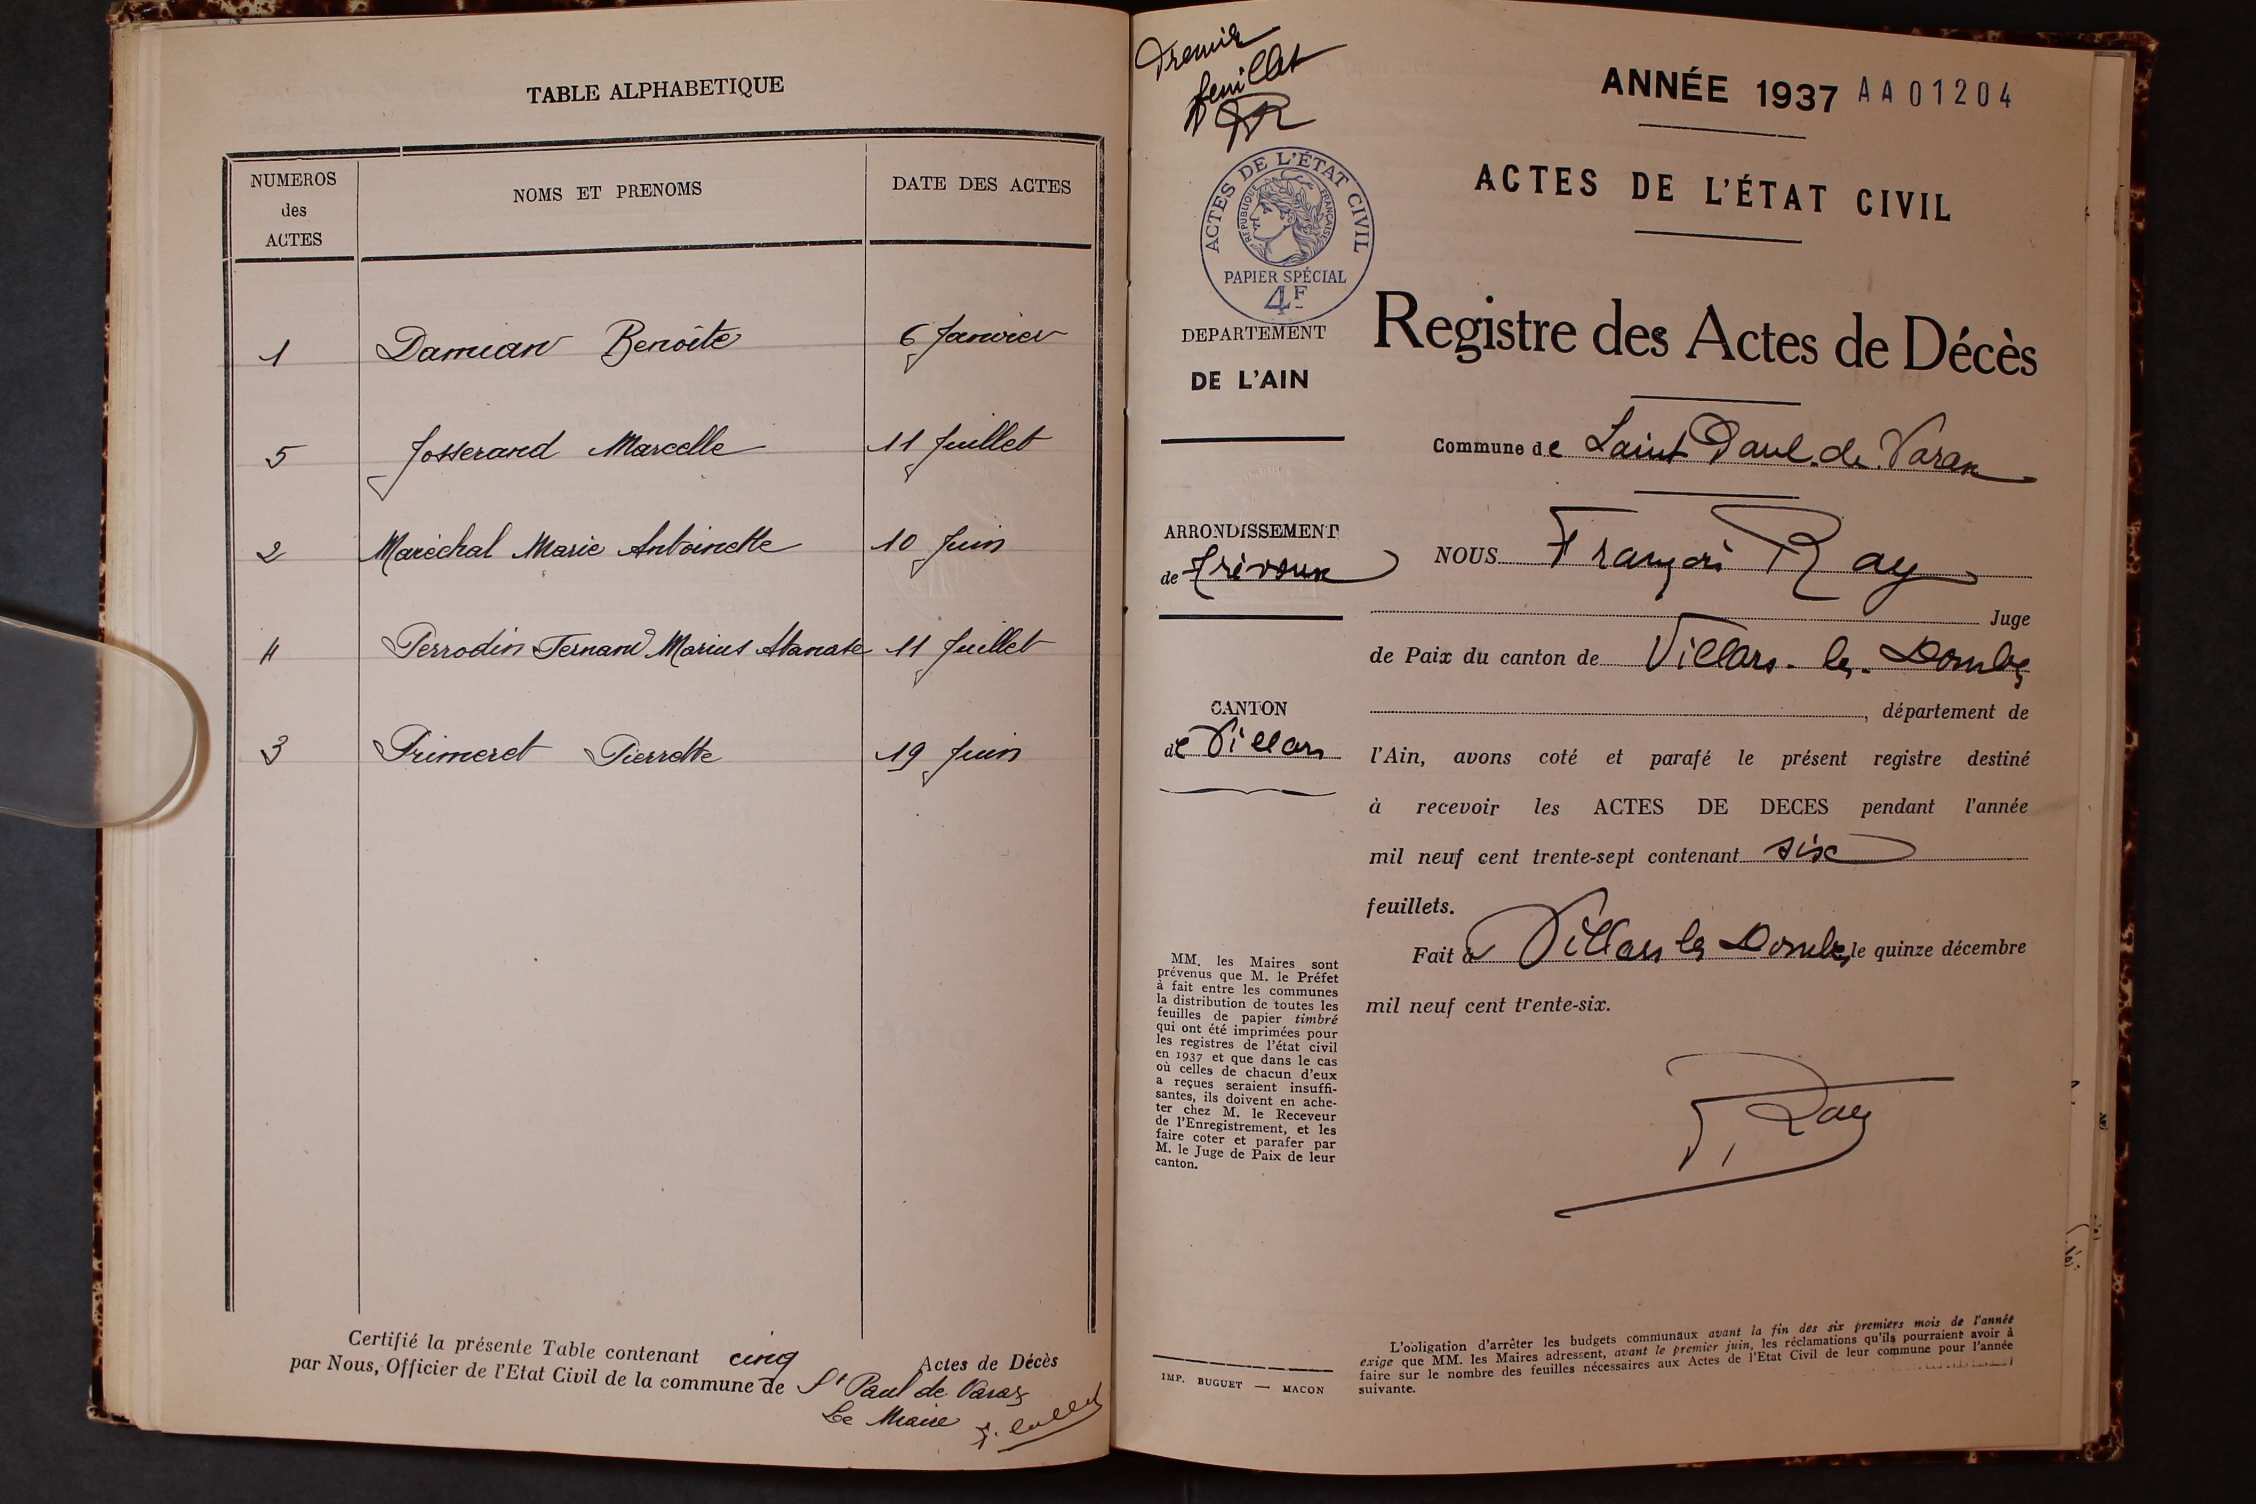 TABLE ALPHABETIQUE
NUMEROS
des
ACTES
NOMS ET PRENOMS
DATE DES ACTES
1 Damian Benoîte 6 Janvier
5 Josserand Marcelle 11 Juillet
2 Maréchal Marie Antoinette 10 Juin
4 Perrodin Fernand Marius Atanase 11 Juillet
3 Primeret Pierrette 19 Juin
Certifié la présente Table contenant cinq Actes de Décès
par Nous, Officier de l'Etat Civil de la commune de St Paul de Varax
Le Maire
Premier
feuillet
ACTES DE L'ÉTAT CIVIL
RÉPUBLIQUE FRANÇAISE
PAPIER SPÉCIAL
4F
DEPARTEMENT
DE L'AIN
ARRONDISSEMENT
de Trévoux
CANTON
de Villars
MM. les Maires sont
prévenus que M. le Préfet
à fait entre les communes
la distribution de toutes les
feuilles de papier timbré
qui ont été imprimées pour
les registres de l'état civil
en 1937 et que dans le cas
où celles de chacun d'eux
a reçues seraient insuffi-
santes, ils doivent en ache-
ter chez M. le Receveur
de l'Enregistrement, et les
faire coter et parafer par
M. le Juge de Paix de leur
canton.
IMP. BUGUET — MACON
ANNÉE 1937 AA01204
ACTES DE L'ÉTAT CIVIL
Registre des Actes de Décès
Commune de Saint Paul de Varax
NOUS François Ray
Juge
de Paix du canton de Villars-les-Dombes
, département de
l'Ain, avons coté et parafé le présent registre destiné
à recevoir les ACTES DE DECES pendant l'année
mil neuf cent trente-sept contenant six
feuillets.
Fait à Villars les Dombes, le quinze décembre
mil neuf cent trente-six.
F. Ray
L'obligation d'arrêter les budgets communaux avant la fin des six premiers mois de l'année
exige que MM. les Maires adressent, avant le premier juin, les réclamations qu'ils pourraient avoir à
faire sur le nombre des feuilles nécessaires aux Actes de l'Etat Civil de leur commune pour l'année
suivante.